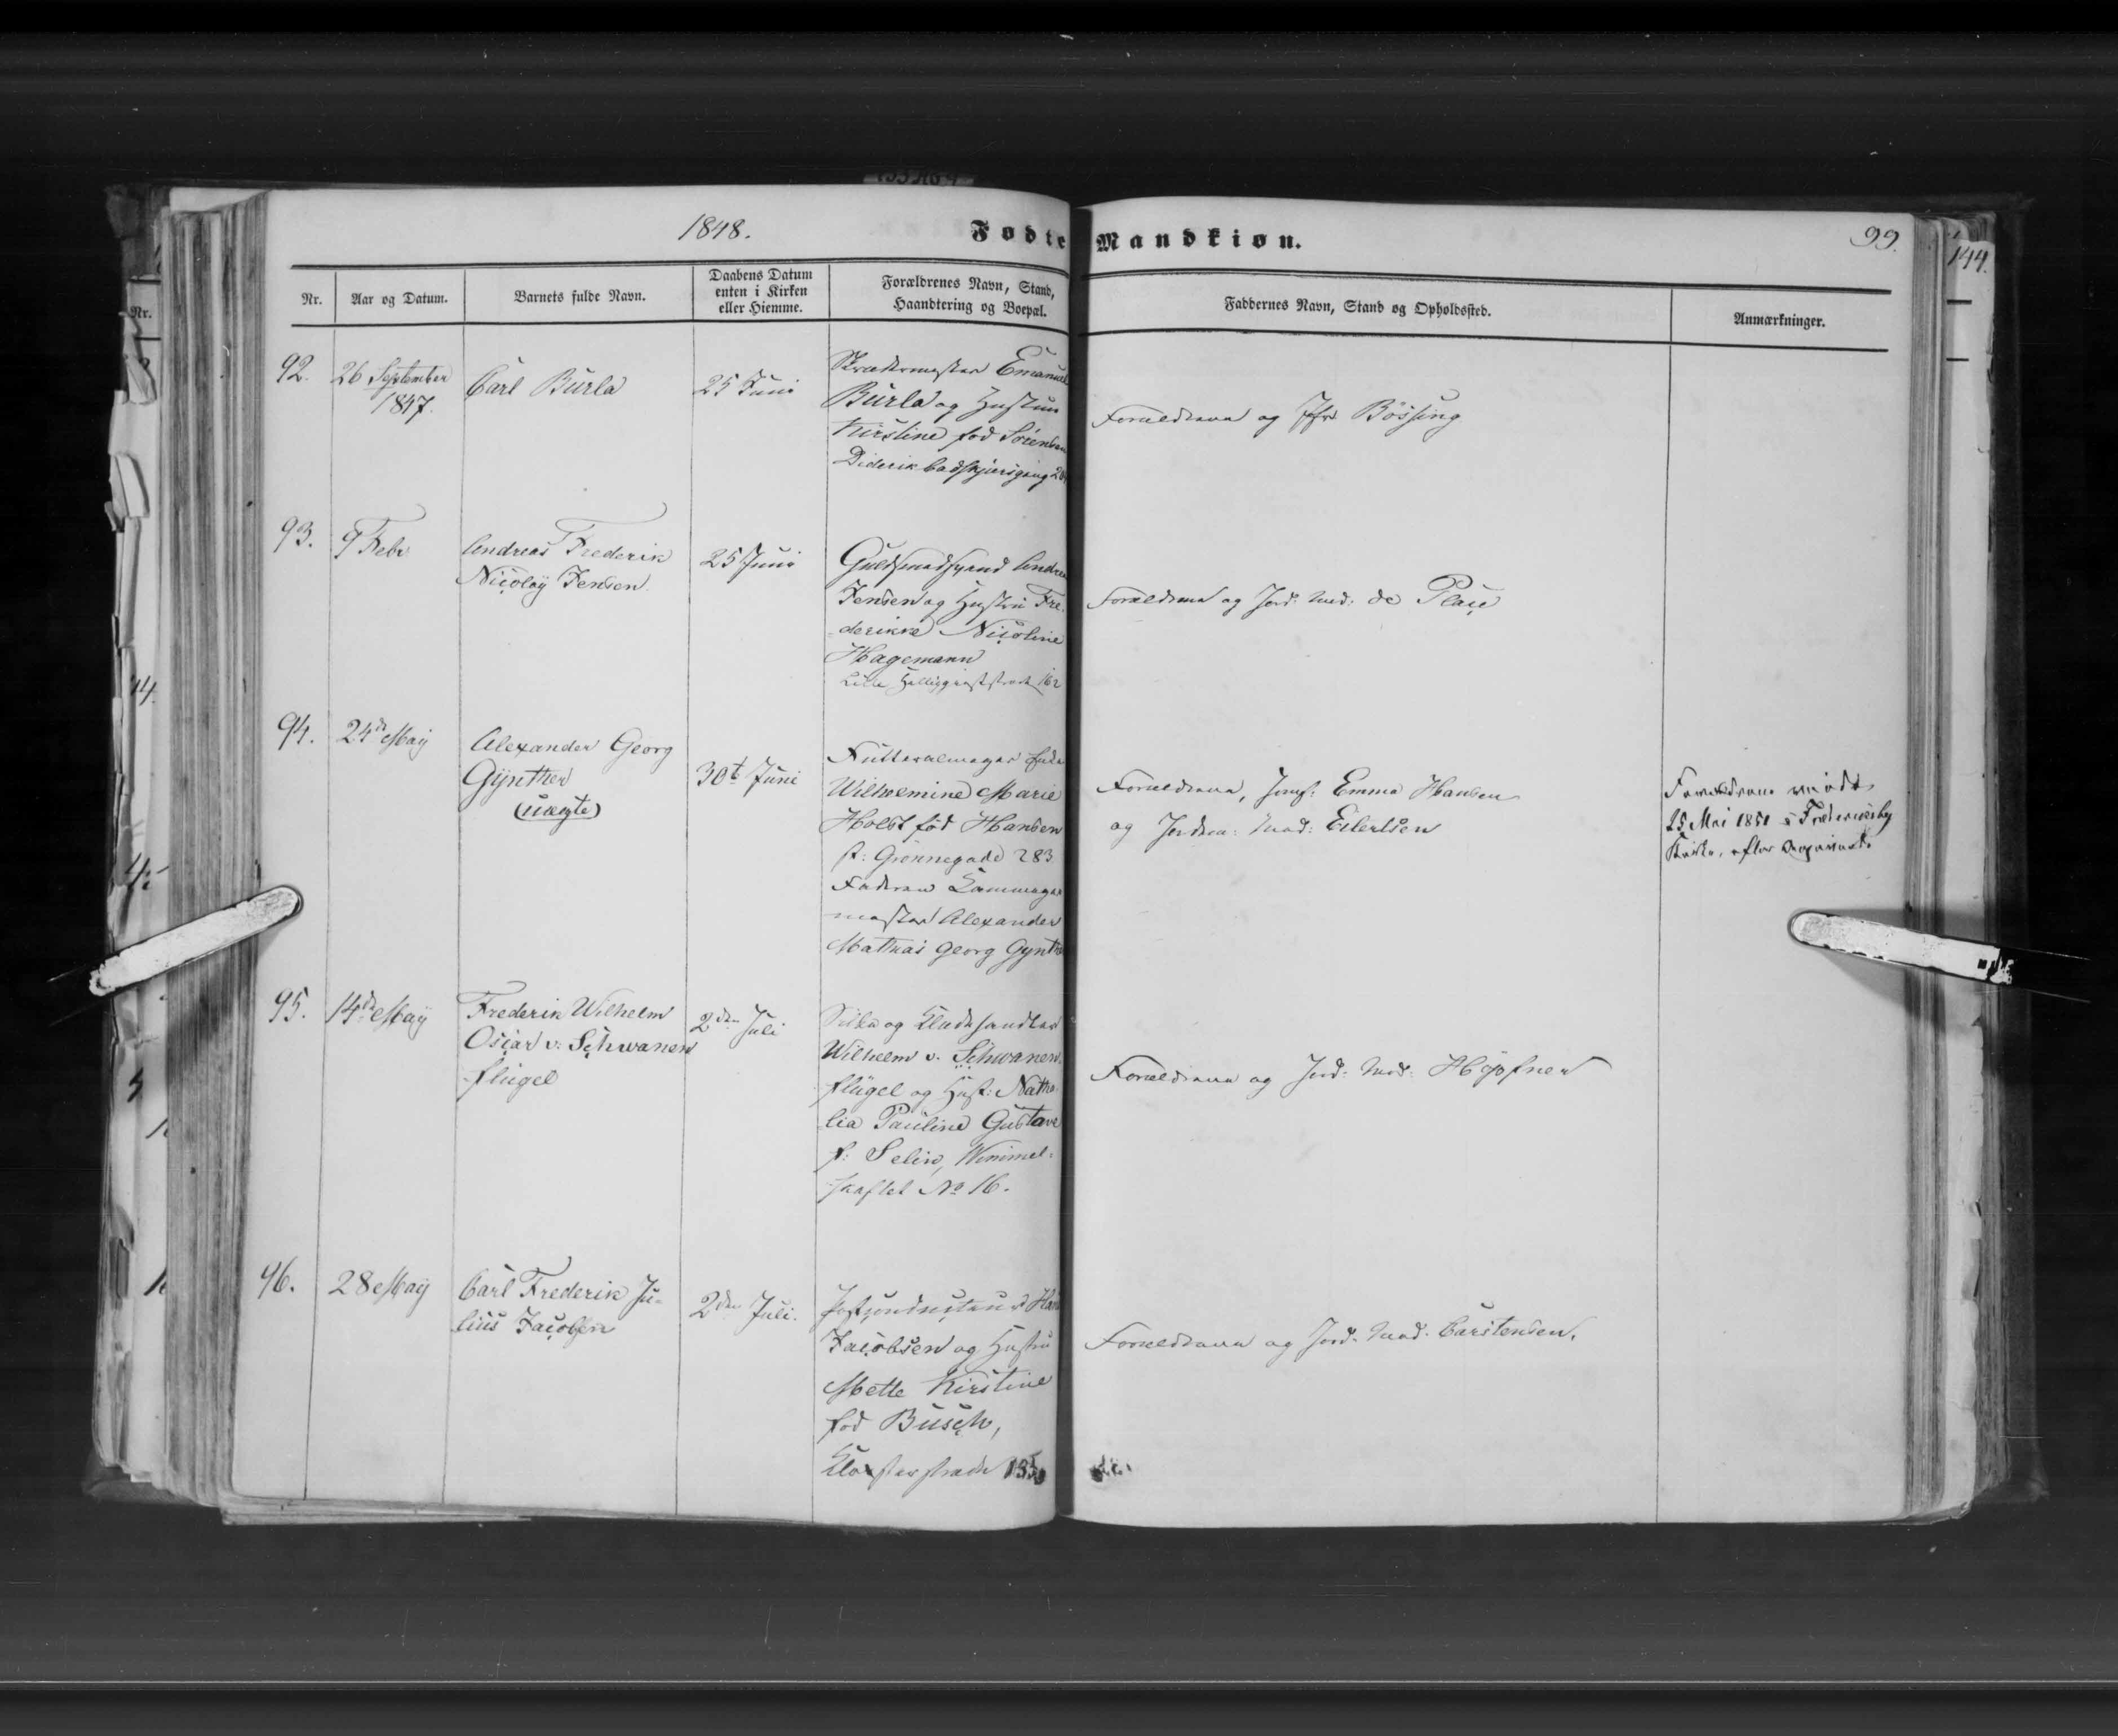 1848.
Fødte Mandkiøn.
99.
144.
Nr.
Nr.
Aar og Datum.
Barnets fulde Navn.
Daabens Datum
enten i Kirken
eller Hiemme.
Forældrenes Navn, Stand,
Haandtering og Boepæl.
Faddernes Navn, Stand og Opholdssted.
Anmærkninger.
92.
26 September
1847.
Carl Burla
25 Juni
Skrædermester Emanuel
Burla og Hustru
Kirstine fød Sörensen
Diderik Badskjærsgang
Forældrene og Jfr. Bössing
93.
9 Febr
Andreas Frederik
Nicolaÿ Jensen
25 Juni
Guldsmedsvend Andrea
Jensen og Hustru Fre-
derikke Nicoline
Hagemann
Lille Helliggeiststræde 162
Forældrene og Jord: Mad: de Place
94.
24de Maÿ
Alexander Georg
Gÿnther
(uægte)
30t Juni
Futteralmager
Wilhelmine Marie
Holst fød Hansen
st: Grönnegade 283
Faderen Kammager
mester Alexander
Mathias Georg Gynthe
Forældrene, Jomf: Emma Hansen
og Jordem: Mad: Eilertsen
Forældrene
25 Mai 1851 i Frederiksberg
Kirke, efter
95.
14de Maÿ
Frederik Wilhelm
Oscar v. Schwanen
flügel
2den Juli
Silke og Klædehandler
Wilhelm v. Schwanen-
flügel og Hust: Natha
lia Pauline Gustave
f: Selin, Wimmel-
skaftet No 16.
Forældrene og Jord: Mad: Höpfner
96.
28 Maÿ
Carl Frederik Ju-
lius Jacobsen
2den Juli.
Hans
Jacobsen og Hustru
Mette Kirstine
fød Busch,
Klosterstræde
Forældrene og Jord. Mad. Carstensen.